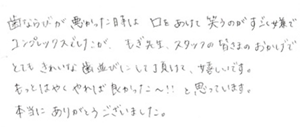 歯ならびが悪かった時は 口をあけて笑うのがすごく嫌で
コンプレックスでしたが、もぎ先生、スタッフの皆さまのおかげで
とてもきれいな歯並びにして頂けて、嬉しいです。
もっとはやくやれば良かった〜!! と思っています。
本当にありがとうございました。